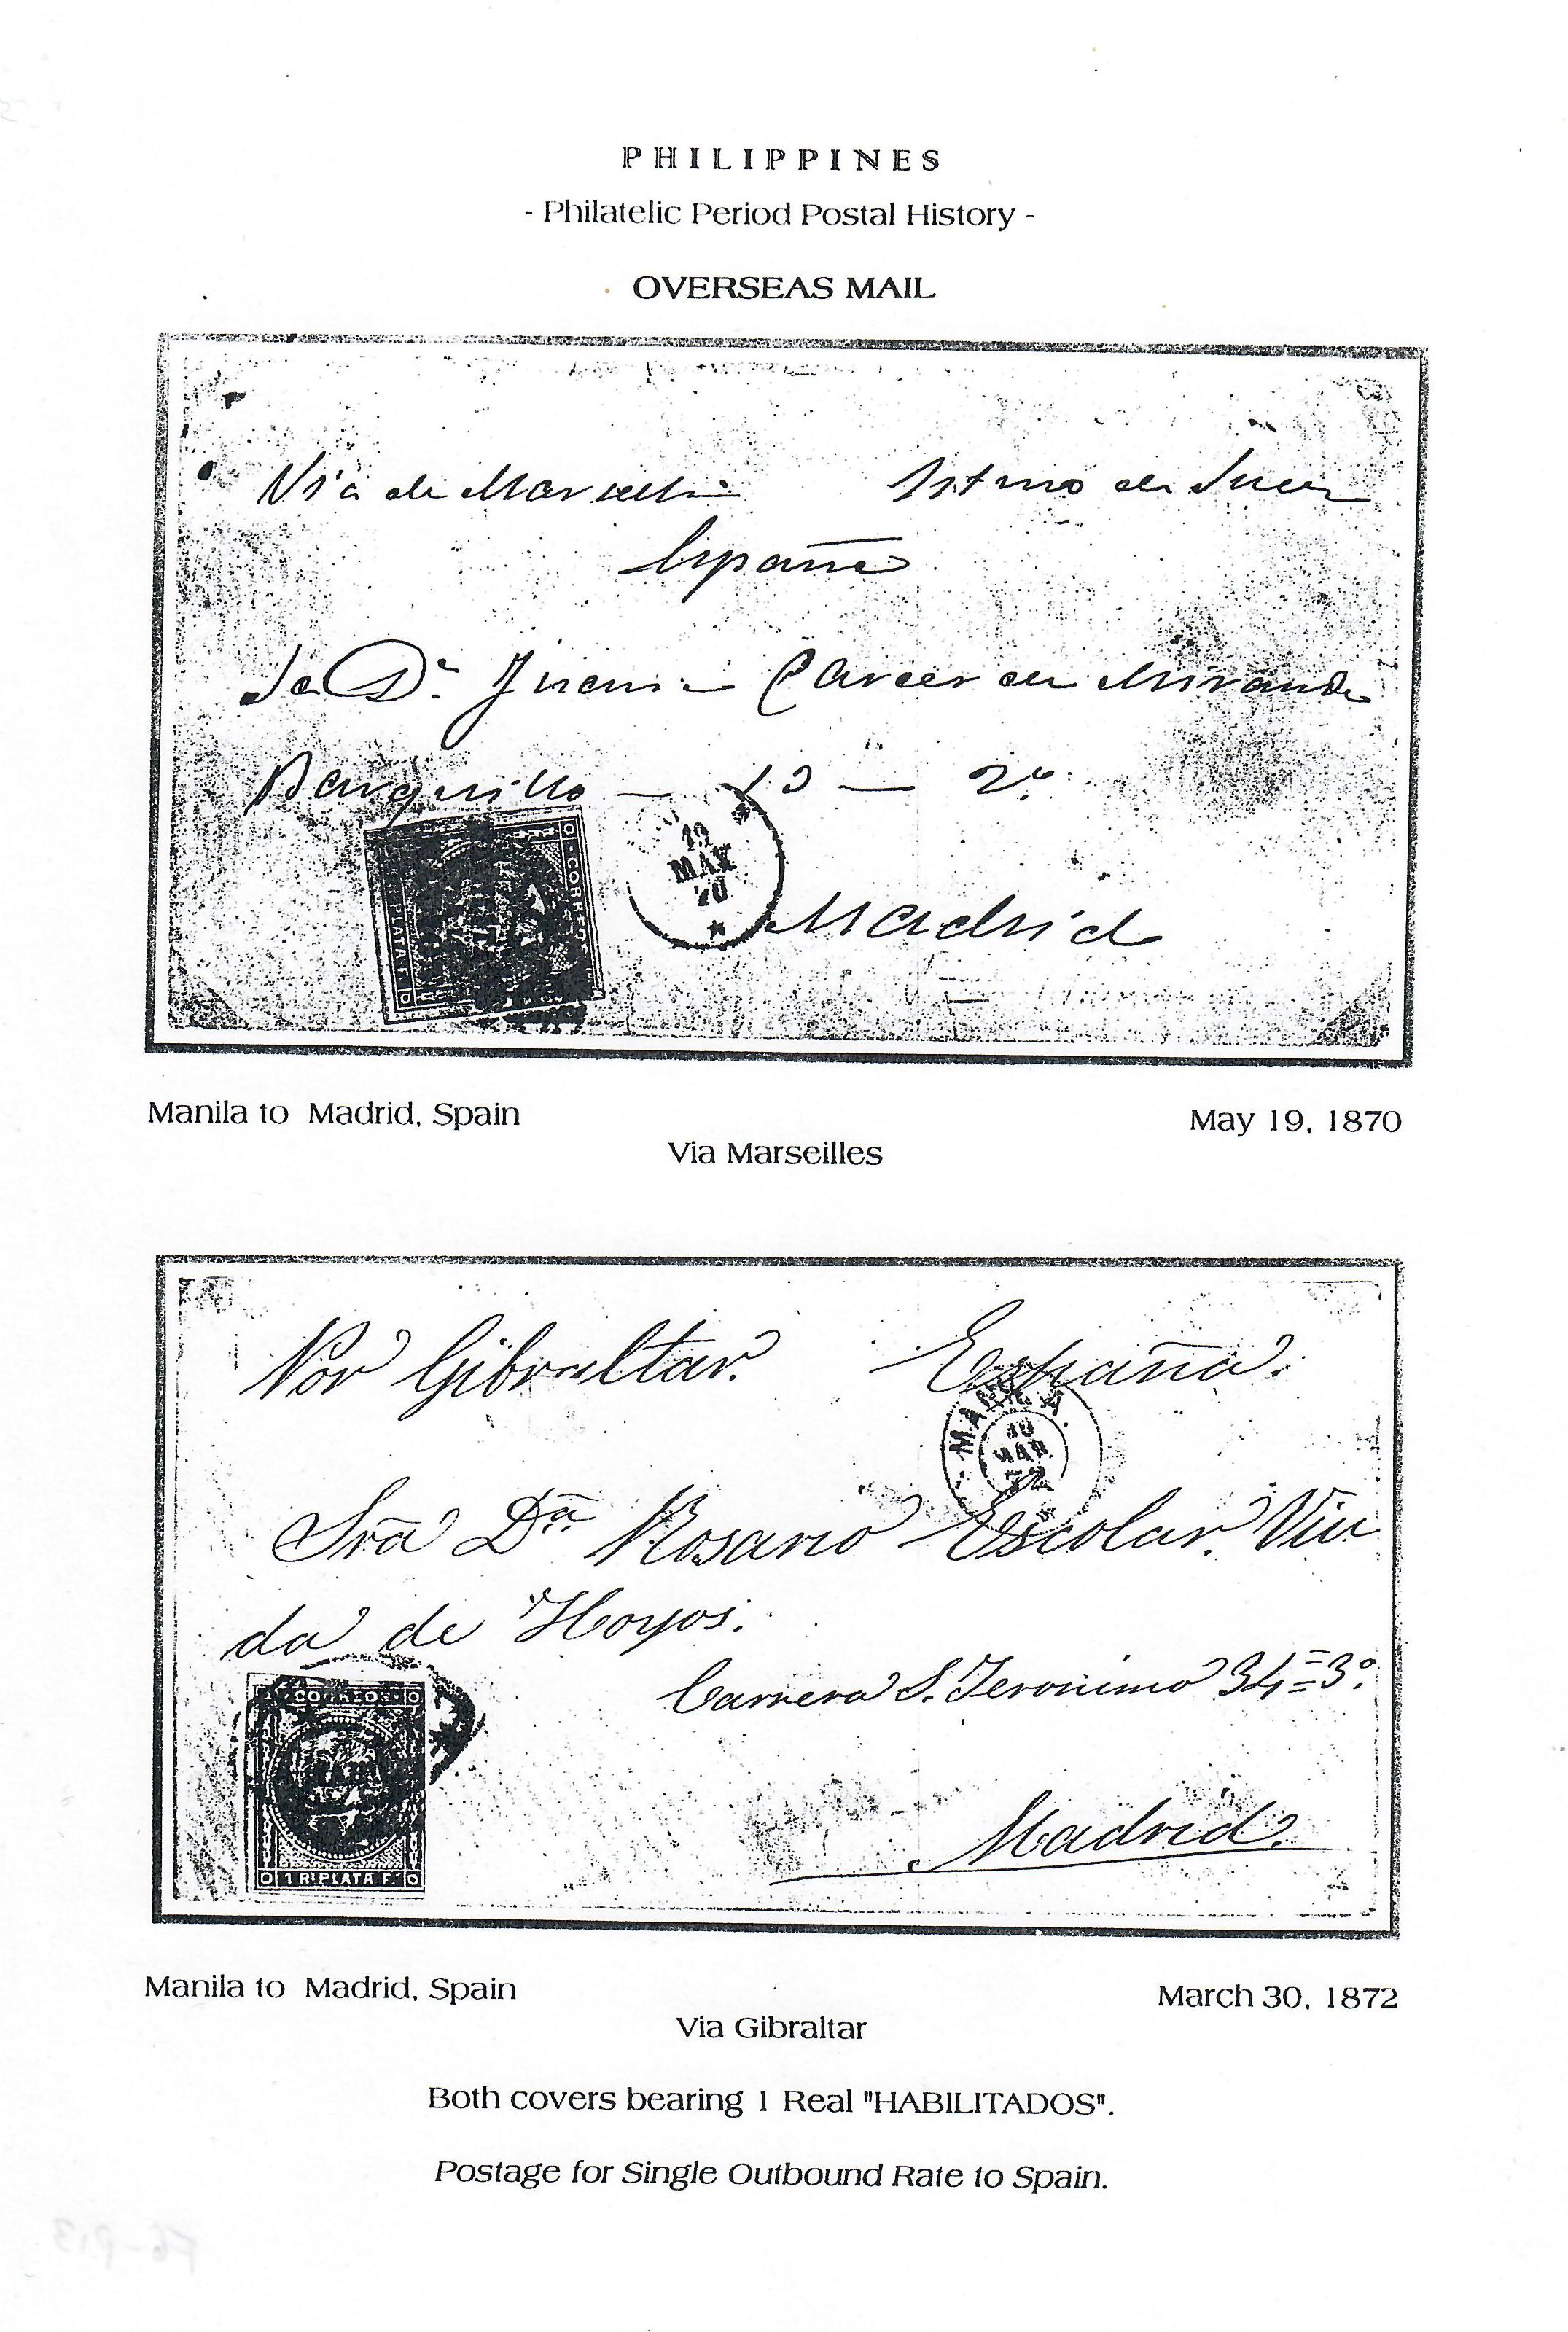 PHILIPPINES
- Philatelic Period Postal History -
OVERSEAS MAIL
Via de Marsella Istmo de Suez
España
Sa Dª Juana Carcer de Miranda
Barquillo — 13 — 2º
19
MAY
70
CORREOS
PLATA F.
Madrid
Manila to Madrid, Spain May 19, 1870
Via Marseilles
Por Gibraltar. España.
MANILA
30
MAR
72
Sra Dª Rosario Escolar. Viu
da de Hoyos.
Carrera S. Jeronimo 34=3º
CORREOS
1 Rl PLATA F.
Madrid.
Manila to Madrid, Spain March 30, 1872
Via Gibraltar
Both covers bearing 1 Real "HABILITADOS".
Postage for Single Outbound Rate to Spain.
F6-P13